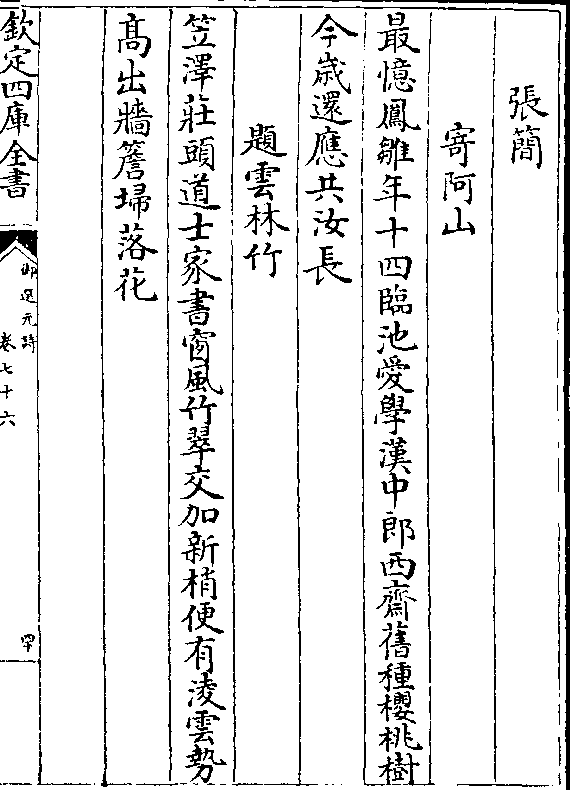 張簡
寄阿山
最憶鳳雛年十四臨池愛學漢中郎西齋舊種櫻桃樹
今歲還應共汝長
題雲林竹
笠澤莊頭道士家書窗風竹翠交加新梢便有淩雲勢
髙出牆簷埽落花
欽定四庫全書
御選元詩
卷七十六